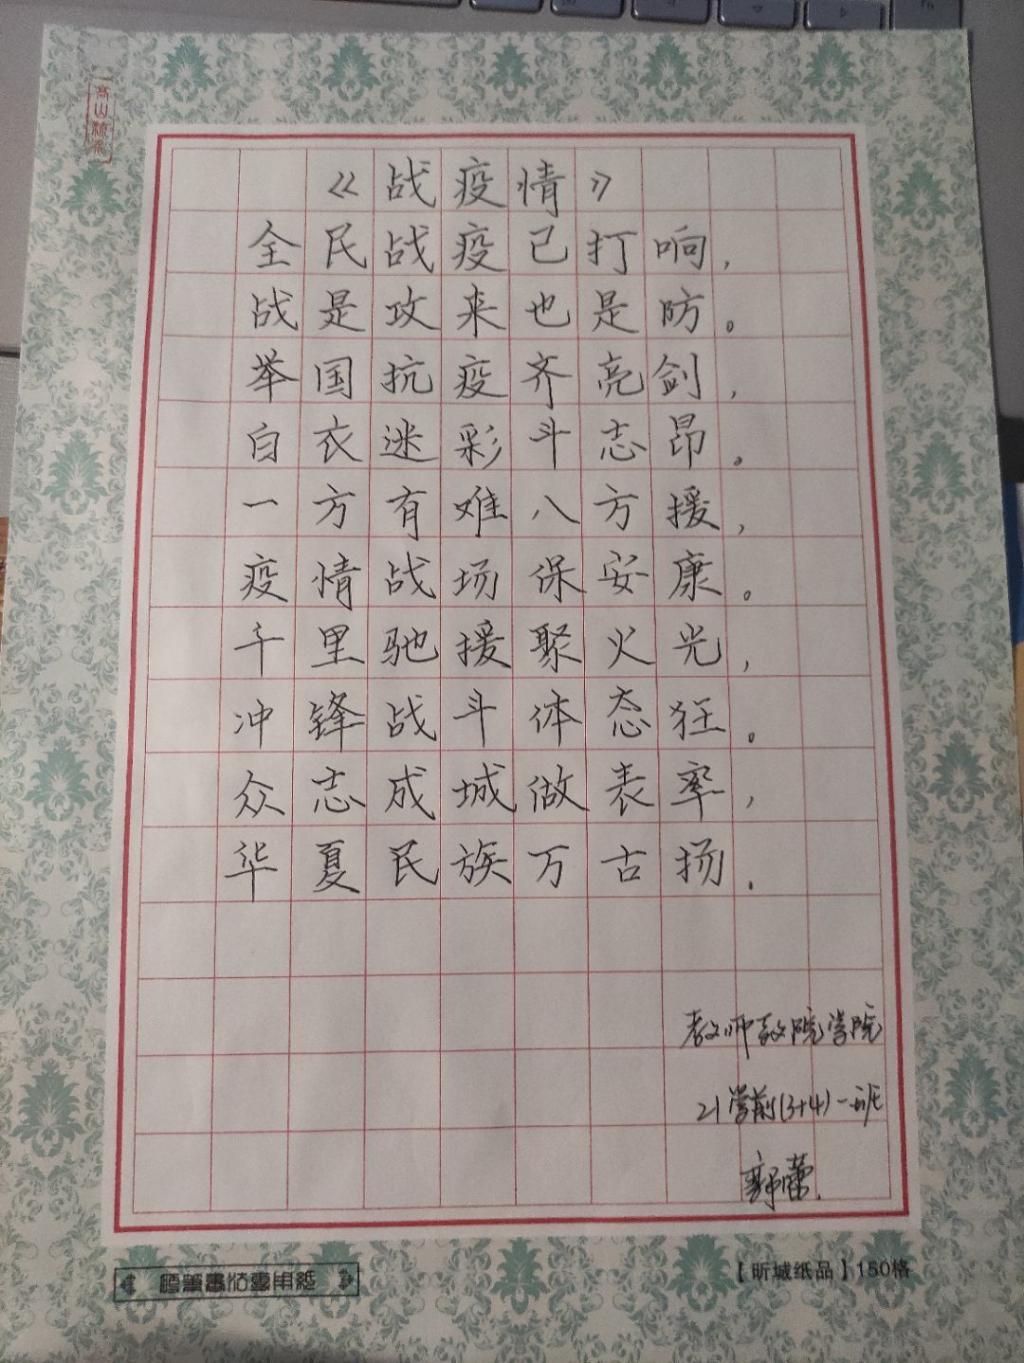 高山流水
《战疫情》
全民战疫已打响，
战是攻来也是防。
举国抗疫齐亮剑，
白衣迷彩斗志昂。
一方有难八方援，
疫情战场保安康。
千里驰援聚火光，
冲锋战斗体态狂。
众志成城做表率，
华夏民族万古扬.
教师教院学院
21学前(3+4)一班
郭蕾.
硬笔书法专用纸
【昕城纸品】150格